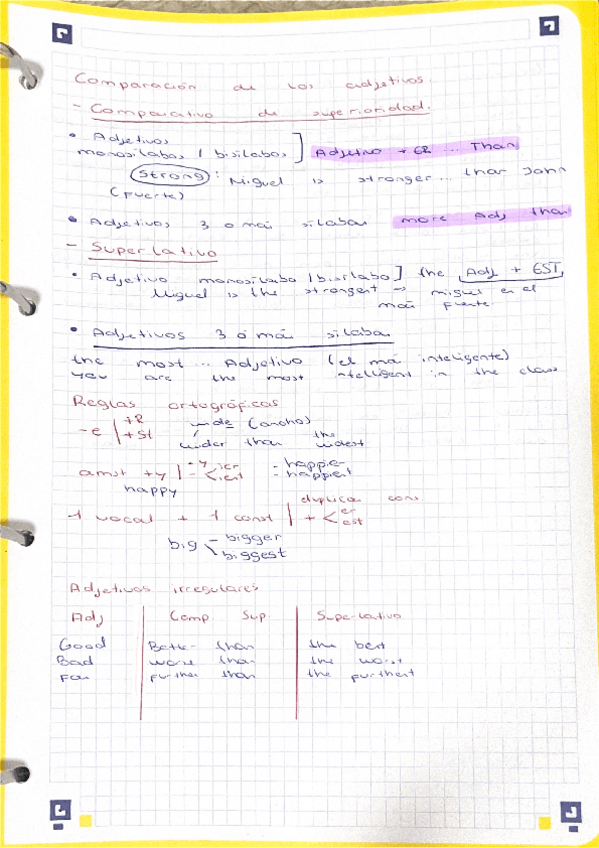 Comparación de los adjetivos.
- Comparativo de superioridad.
• Adjetivos
monosilabos / bisilabos ] Adjetivo + ER ... Than
Strong : Miguel is stronger... than John
(fuerte)
• Adjetivos 3 o más silabas more Adj than
- Superlativo
• Adjetivo monosilabo / bisilabo ] the Adj + EST
Miguel is the strongest → miguel es el
más fuerte
• Adjetivos 3 ó más silabas
the most ... Adjetivo (el más inteligente)
You are the most intelligent in the class
Reglas ortográficas
-e | +R wide (ancho)
+st wider than the widest
const + y | - y ier = happier
- < iest = happiest
happy
duplica cons
1 vocal + 1 const | + < er
est
big - bigger
biggest
Adjetivos irregulares
Adj Comp. Sup. Superlativo
Good Better than the best
Bad worse than the worst
Far further than the furthest